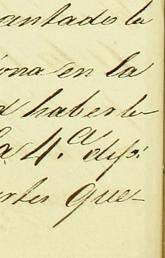 antado la
iona en la
d haberle
la 4.ª disp.
rtes que-